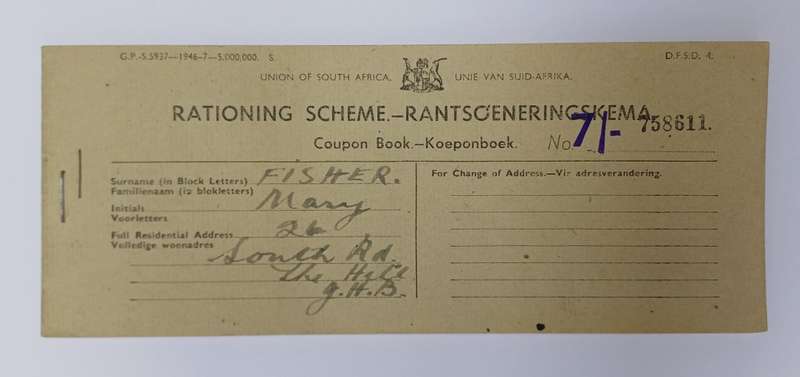 G.P.-S.5937—1946-7—5,000,000. S.
D.F.S.D. 4.
UNION OF SOUTH AFRICA. UNIE VAN SUID-AFRIKA.
RATIONING SCHEME.—RANTSOENERINGSKEMA
Coupon Book.—Koeponboek. No. 7/- 758611.
Surname (in Block Letters) FISHER.
Familienaam (in blokletters)
Initials Mary
Voorletters
Full Residential Address 26
Volledige woonadres
South Rd.
The Hill
g.H.B.
For Change of Address.—Vir adresverandering.